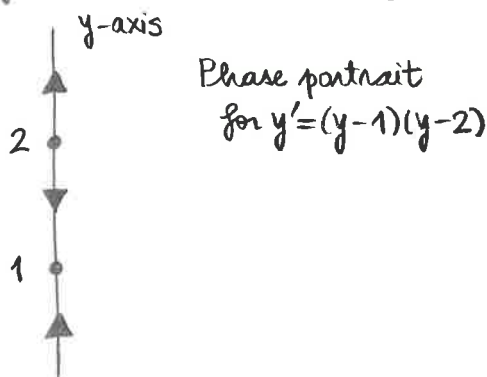 y-axis
Phase portrait
for y'=(y-1)(y-2)
2
1